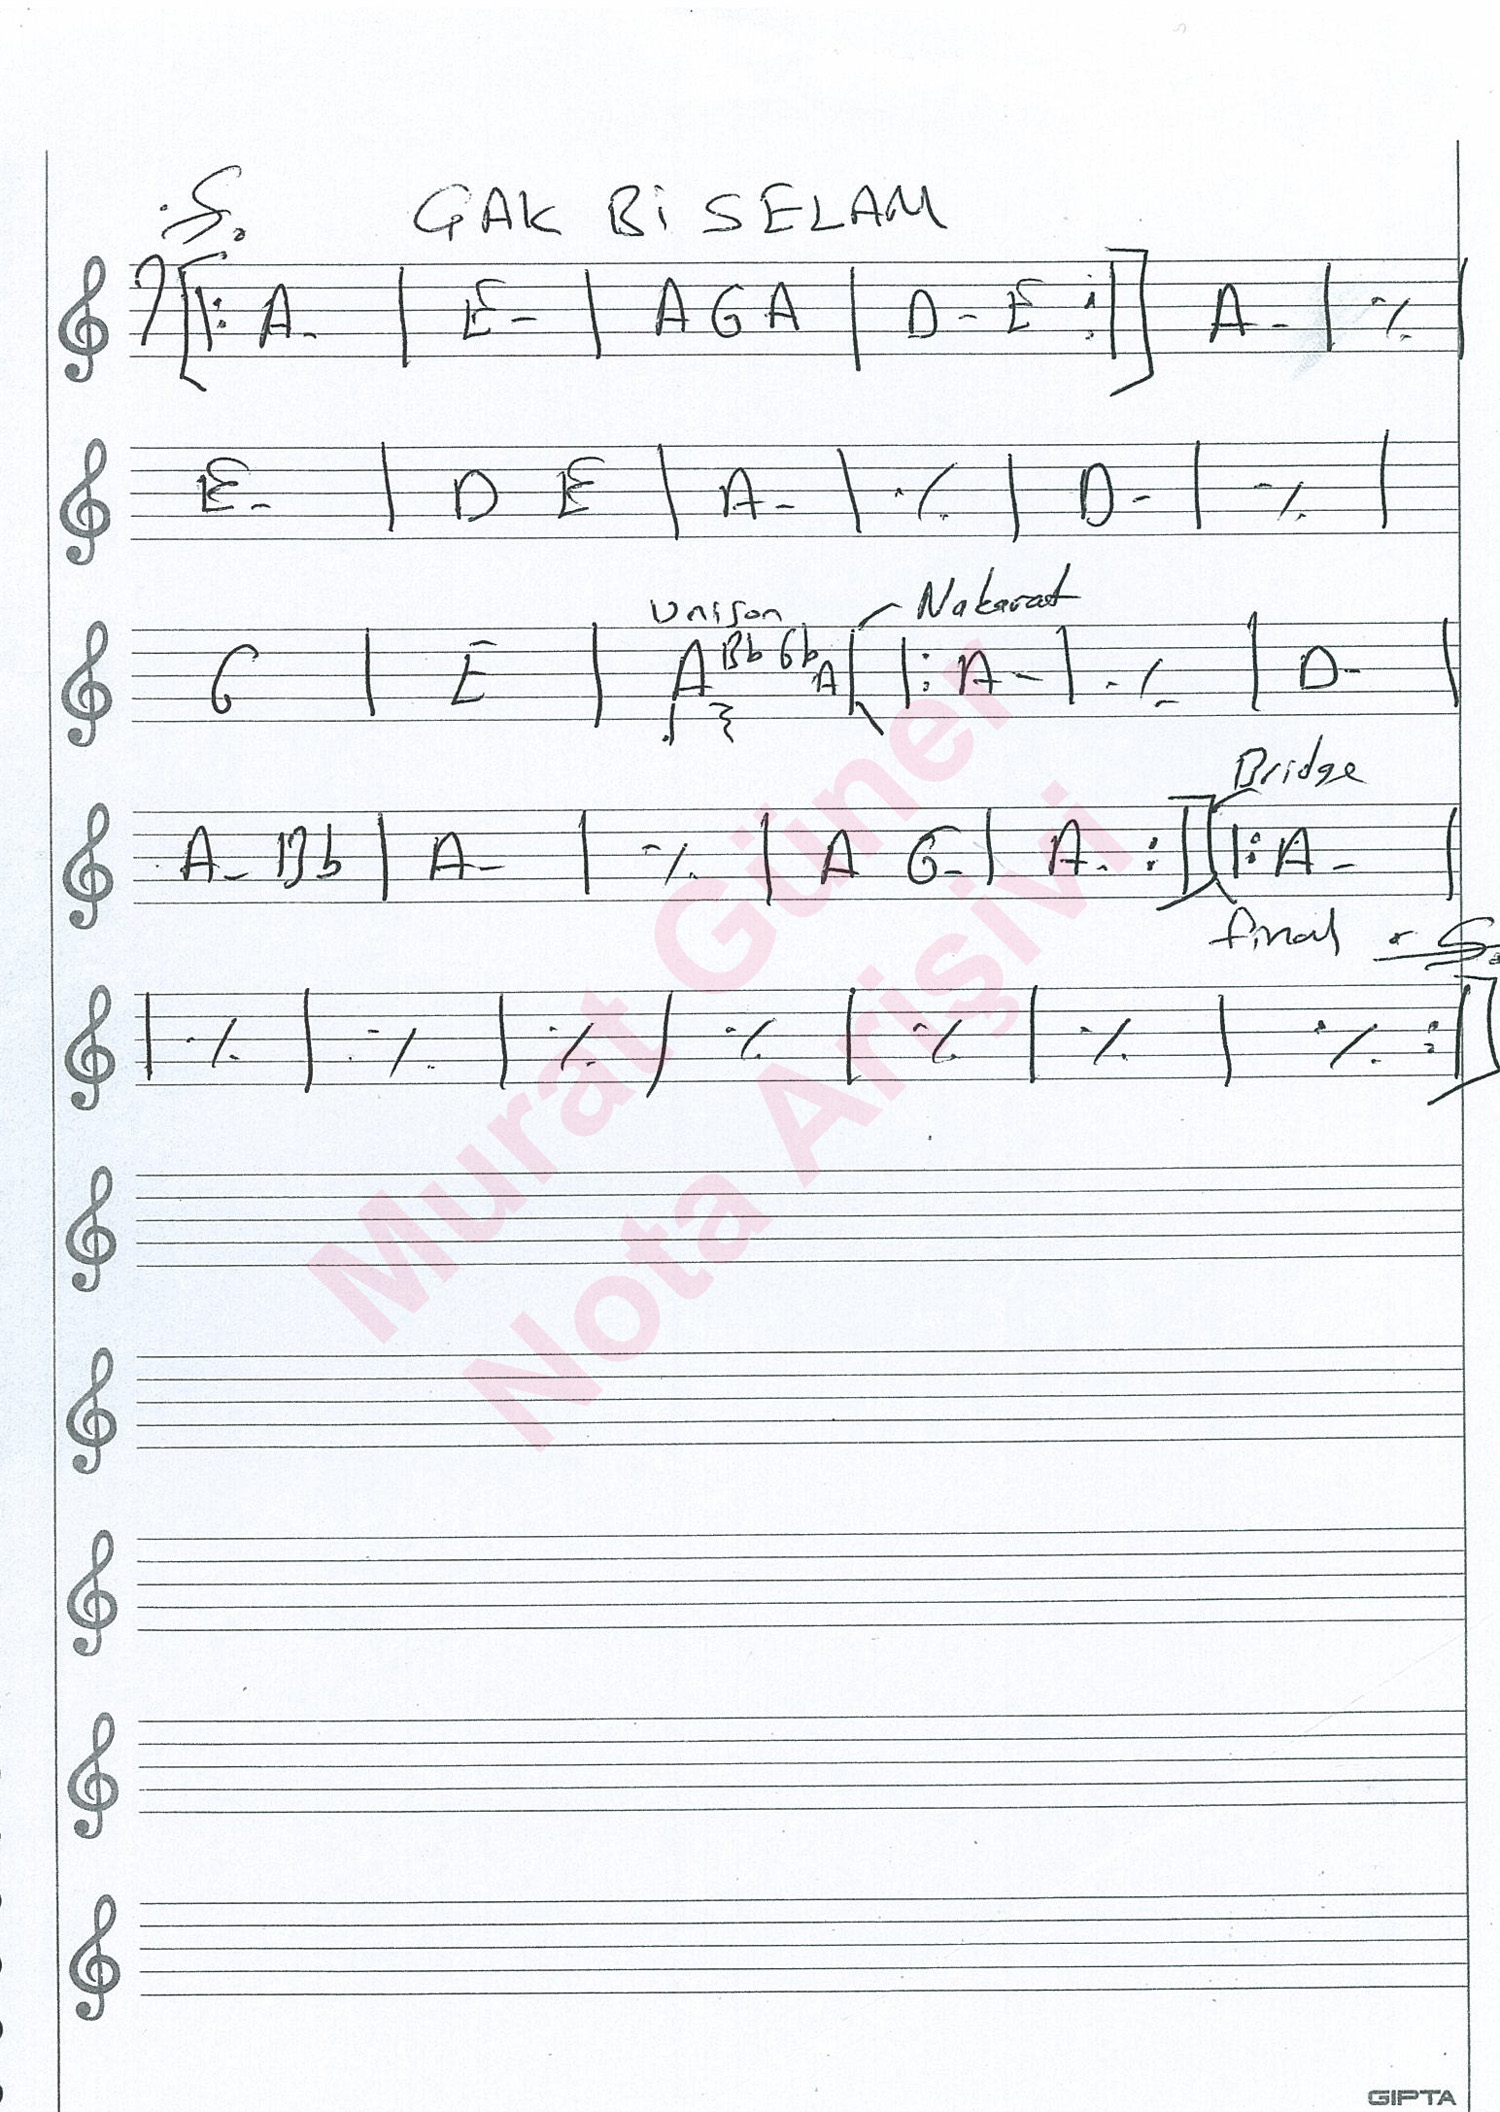 GAK Bi SELAM
|: A- | E- | A G A | D- E :| A- | ٪ |
E- | D E | A- | ٪ | D- | ٪ |
Unison Nakarat
G | E | A Bb Gb A | |: A- | ٪ | D- |
Bridge
A- Bb | A- | ٪ | A G- | A- :| |: A- |
final
| ٪ | ٪ | ٪ | ٪ | ٪ | ٪ | ٪ :|
Murat Güner
Nota Arişivi
GIPTA